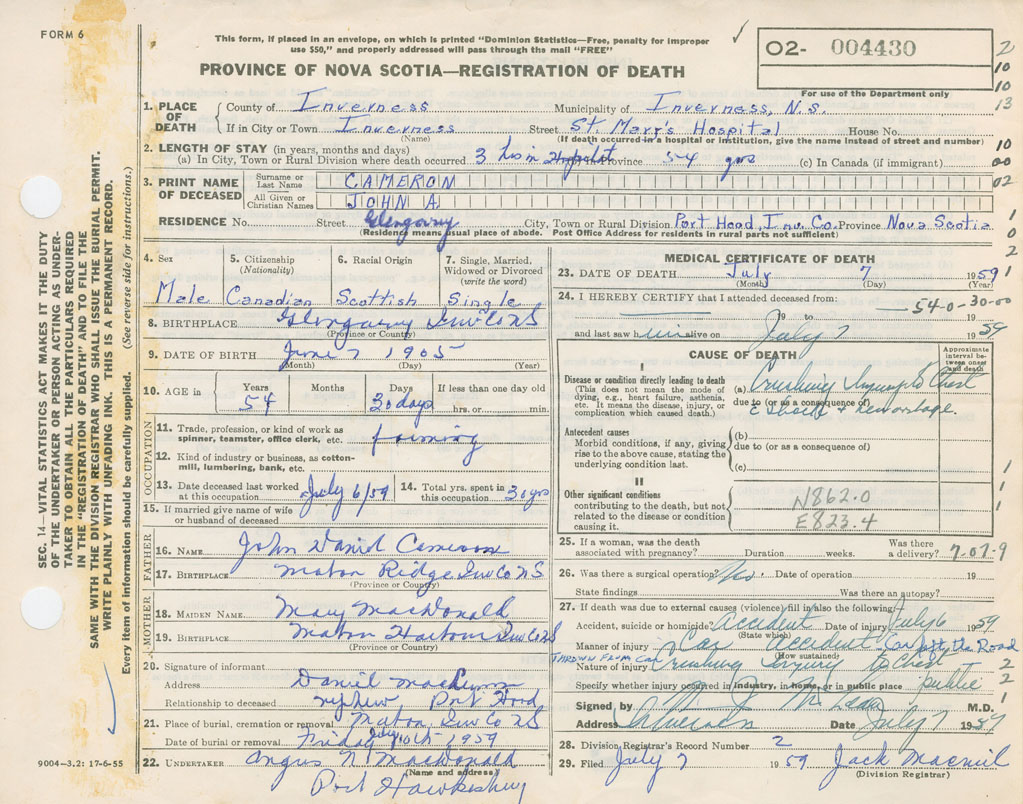 FORM 6
This form, if placed in an envelope, on which is printed "Dominion Statistics—Free, penalty for improper
use $50," and properly addressed will pass through the mail "FREE"
✓
O2- 004430
For use of the Department only
PROVINCE OF NOVA SCOTIA—REGISTRATION OF DEATH
2
10
10
13
10
00
02
1
0
2
1
SEC. 14—VITAL STATISTICS ACT MAKES IT THE DUTY
OF THE UNDERTAKER OR PERSON ACTING AS UNDER-
TAKER TO OBTAIN ALL THE PARTICULARS REQUIRED
IN THE "REGISTRATION OF DEATH" AND TO FILE THE
SAME WITH THE DIVISION REGISTRAR WHO SHALL ISSUE THE BURIAL PERMIT.
WRITE PLAINLY WITH UNFADING INK. THIS IS A PERMANENT RECORD.
Every item of Information should be carefully supplied. (See reverse side for instructions.)
1. PLACE OF DEATH
County of Inverness Municipality of Inverness, N.S.
If in City or Town Inverness Street St. Mary's Hospital House No.
(Name) (If death occurred in a hospital or institution, give the name instead of street and number)
2. LENGTH OF STAY (in years, months and days)
(a) In City, Town or Rural Division where death occurred 3 hrs in Province 54 yrs (c) In Canada (if immigrant)
3. PRINT NAME OF DECEASED
Surname or Last Name CAMERON
All Given or Christian Names JOHN A.
RESIDENCE No. Street Glengarry City, Town or Rural Division Port Hood, Inv. Co. Province Nova Scotia
(Residence means usual place of abode. Post Office Address for residents in rural parts not sufficient)
4. Sex
Male
5. Citizenship
(Nationality)
Canadian
6. Racial Origin
Scottish
7. Single, Married,
Widowed or Divorced
(write the word)
Single
8. BIRTHPLACE Glengarry Inv Co NS
(Province or Country)
9. DATE OF BIRTH June 7 1905
(Month) (Day) (Year)
10. AGE in
Years 54
Months
Days 30 days
If less than one day old
hrs. or min.
OCCUPATION
11. Trade, profession, or kind of work as
spinner, teamster, office clerk, etc. farming
12. Kind of industry or business, as cotton-
mill, lumbering, bank, etc.
13. Date deceased last worked
at this occupation July 6/59
14. Total yrs. spent in
this occupation 30 yrs
15. If married give name of wife
or husband of deceased
FATHER
16. NAME John Daniel Cameron
17. BIRTHPLACE Mabou Ridge Inv Co NS
(Province or Country)
MOTHER
18. MAIDEN NAME Mary MacDonald
19. BIRTHPLACE Mabou Harbour Inv Co NS
(Province or Country)
20. Signature of informant Daniel
Address Port Hood
Relationship to deceased nephew
21. Place of burial, cremation or removal Mabou Inv Co NS
Date of burial or removal Friday July 10th 1959
22. UNDERTAKER Angus N. MacDonald
(Name and address)
Port Hawkesbury
9004—3.2: 17-6-55
MEDICAL CERTIFICATE OF DEATH
23. DATE OF DEATH July 7 1959
(Month) (Day) (Year)
24. I HEREBY CERTIFY that I attended deceased from: 54-0-30-00
19 to 19
and last saw him alive on July 7 1959
CAUSE OF DEATH
Approximate
interval be-
tween onset
and death
I
Disease or condition directly leading to death
(This does not mean the mode of
dying, e.g., heart failure, asthenia,
etc. It means the disease, injury, or
complication which caused death.)
(a) Crushing Injury to Chest
due to (or as a consequence of)
c Shock & hemorrhage.
Antecedent causes
Morbid conditions, if any, giving
rise to the above cause, stating the
underlying condition last.
(b)
due to (or as a consequence of)
(c)
II
Other significant conditions
contributing to the death, but not
related to the disease or condition
causing it.
N862.0
E823.4
1
1
1
25. If a woman, was the death
associated with pregnancy? Duration weeks. Was there
a delivery? 7-07-9
26. Was there a surgical operation? No. Date of operation 19
State findings Was there an autopsy?
27. If death was due to external causes (violence) fill in also the following:
Accident, suicide or homicide? Accident Date of injury July 6 1959
(State which)
Manner of injury Car accident Car left the Road
(How sustained)
THROWN FROM CAR
Nature of injury Crushing Injury to Chest
Specify whether injury occurred in industry, in home, or in public place public
1
2
2
1
Signed by M.D.
Address Inverness Date July 7 1959
28. Division Registrar's Record Number 2
29. Filed July 7 1959 Jack
(Division Registrar)